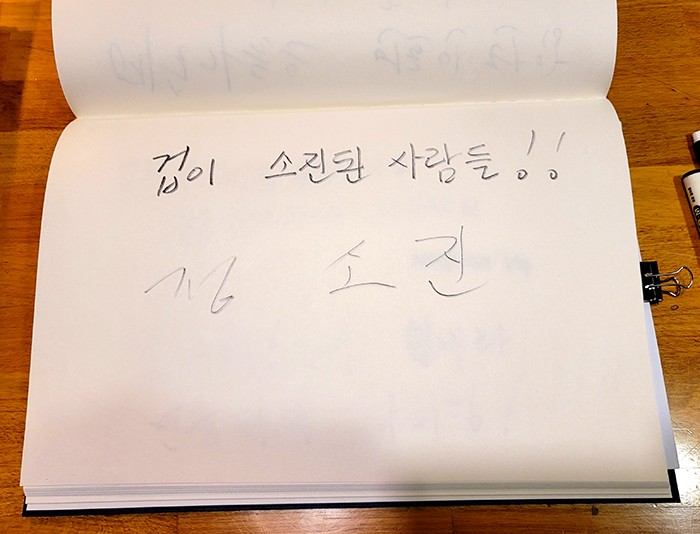 겁이 소진된 사람들!!
소진